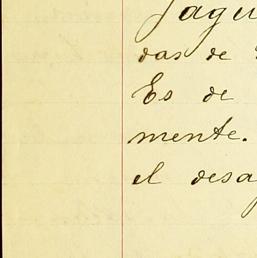 Jagu
das de
Es de
mente.
el desa